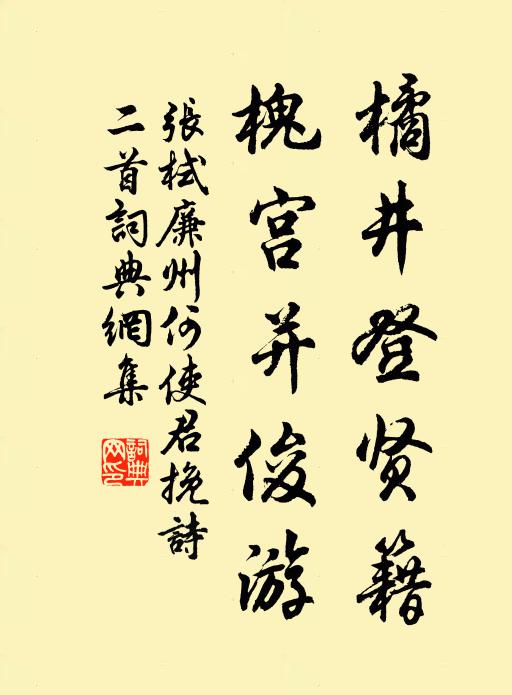 橘井登贤籍
槐宫并俊游
張栻廉州何使君挽詩
二首詞典網集
詞典网印